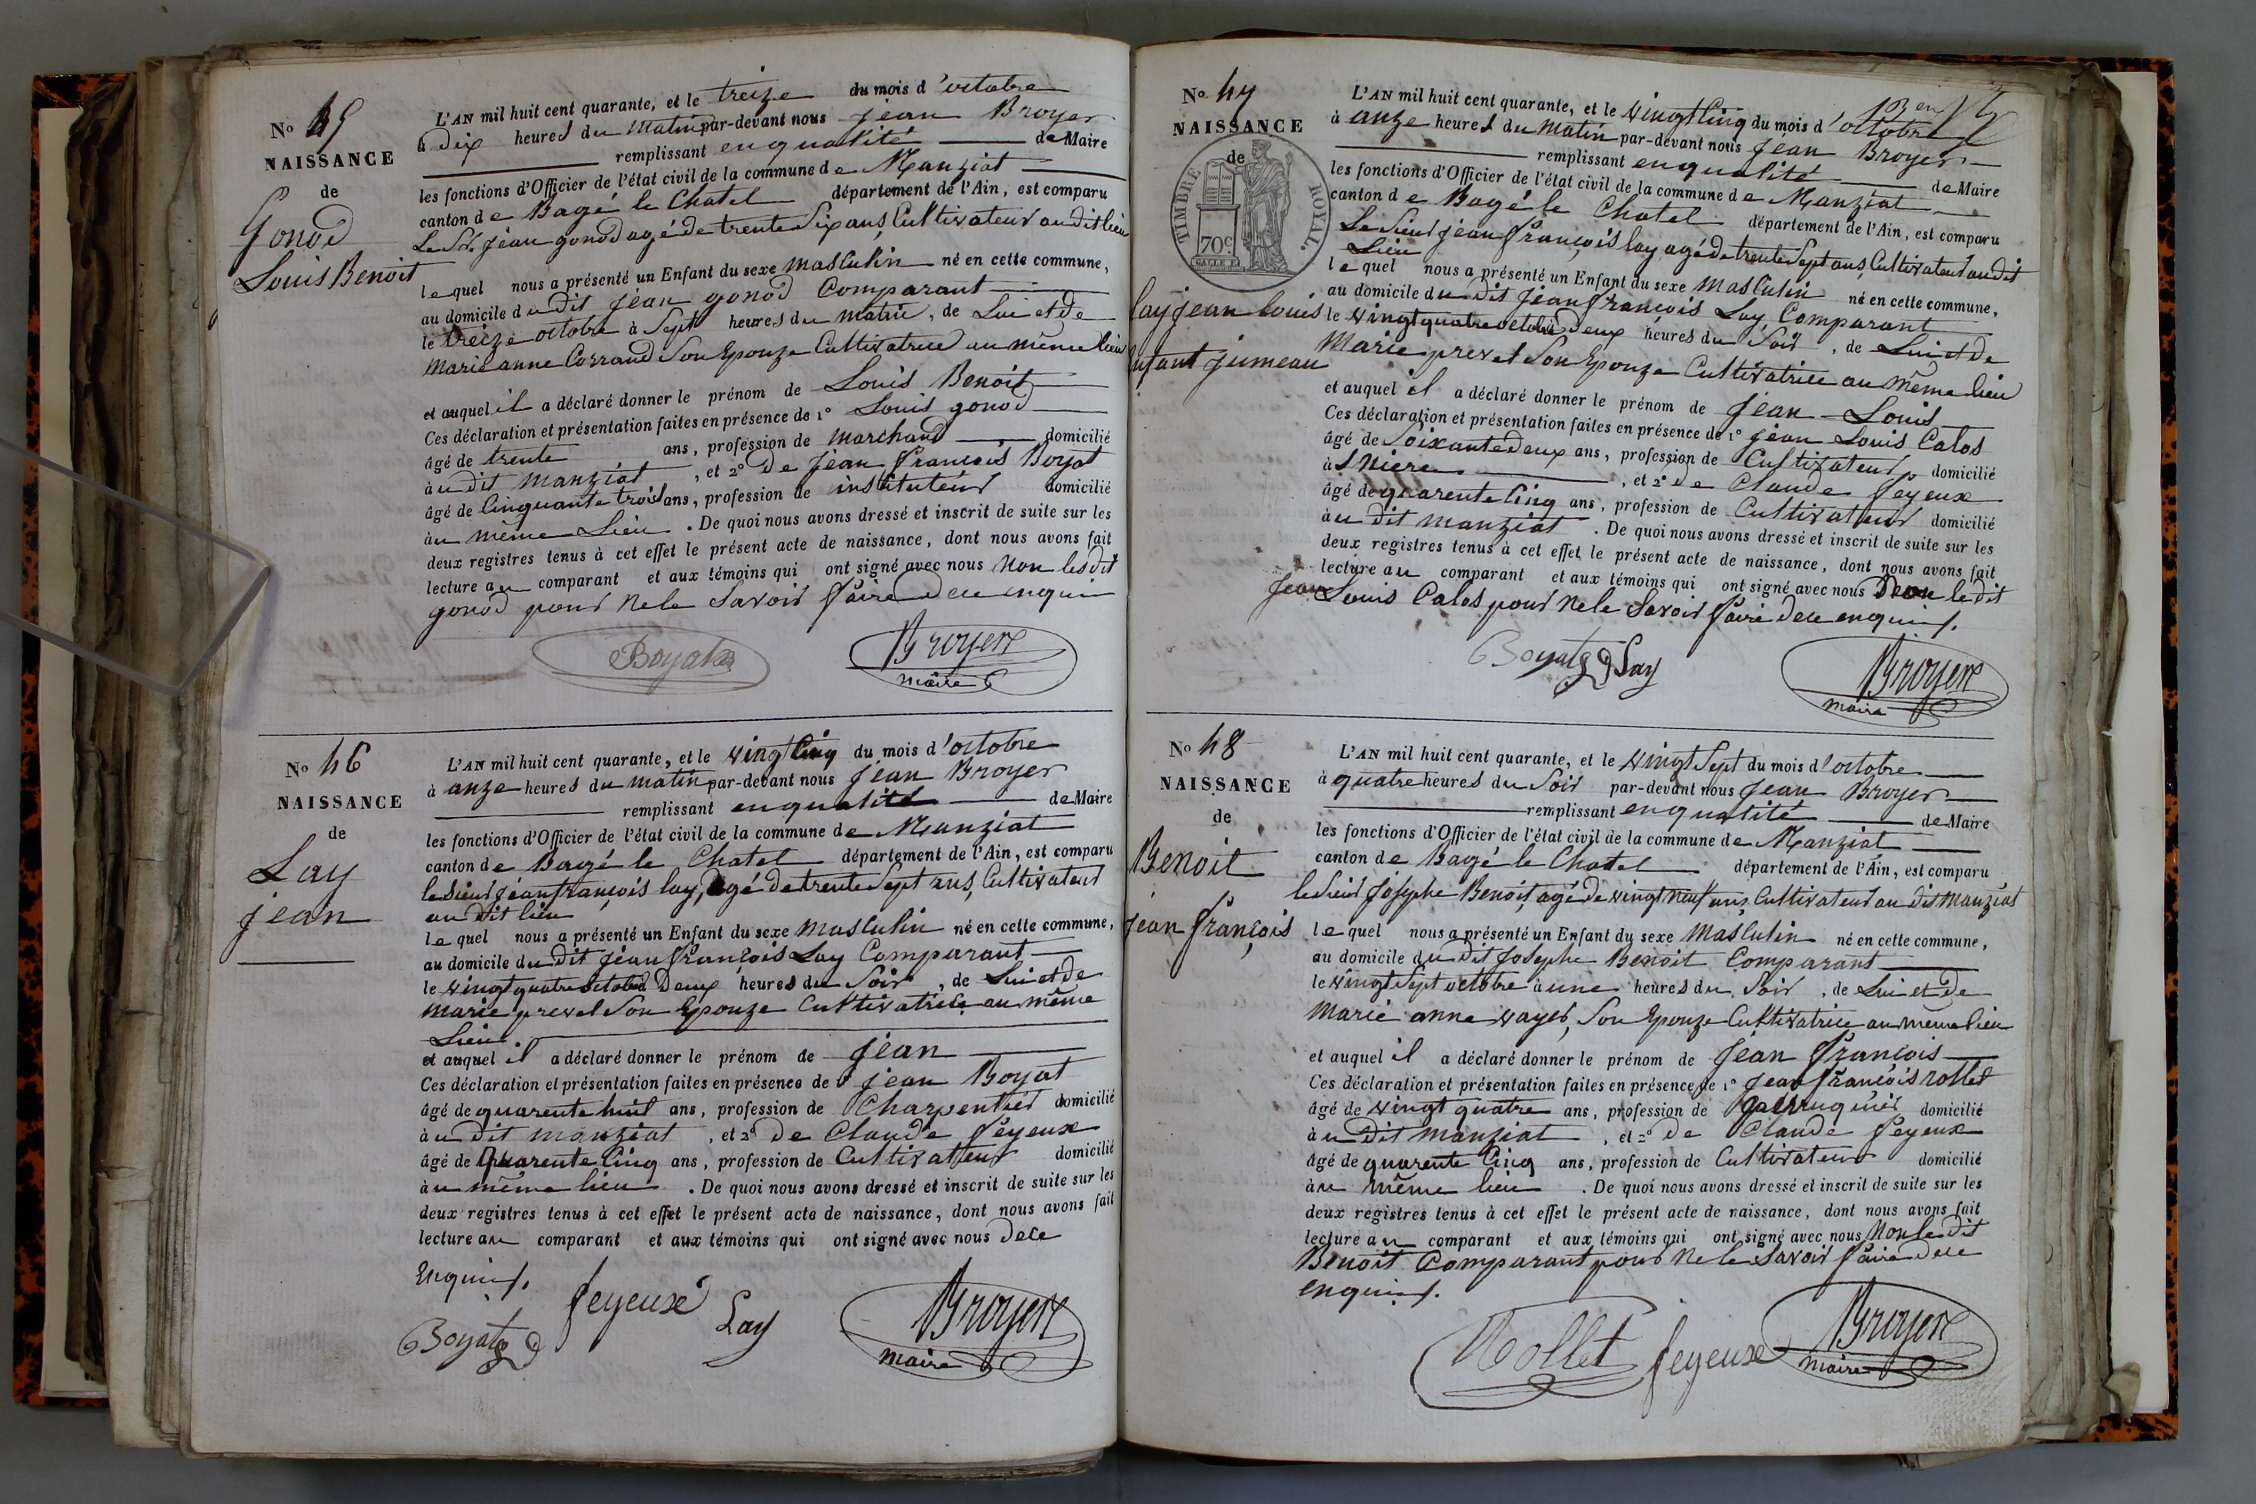 No 45
NAISSANCE
de
Gonod
Louis Benoit
L'AN mil huit cent quarante, et le treize du mois d'octobre
à dix heures du matin par-devant nous jean Broyer
remplissant en qualité de Maire
les fonctions d'Officier de l'état civil de la commune de Manziat
canton de Bagé le Chatel département de l'Ain, est comparu
Le Sr. jean gonod agé de trente Six ans, Cultivateur au dit lieu
lequel nous a présenté un Enfant du sexe masculin né en cette commune,
au domicile du dit jean gonod Comparant
le treize octobre à Sept heures du matin, de Lui et de
marie anne Corraud Son Epouze Cultivatrice au même lieu
et auquel il a déclaré donner le prénom de Louis Benoit
Ces déclaration et présentation faites en présence de 1° Louis gonod
âgé de trente ans, profession de marchand domicilié
au dit manziat, et 2° de jean françois Boyat
âgé de Cinquante trois ans, profession de instituteur domicilié
au même Lieu. De quoi nous avons dressé et inscrit de suite sur les
deux registres tenus à cet effet le présent acte de naissance, dont nous avons fait
lecture au comparant et aux témoins qui ont signé avec nous Non les dit
gonod pour ne le Savoir faire de ce enquis
Boyat
Broyer
maire
No 46
NAISSANCE
de
Lay
jean
L'AN mil huit cent quarante, et le vingt Cinq du mois d'octobre
à onze heures du matin par-devant nous jean Broyer
remplissant en qualité de Maire
les fonctions d'Officier de l'état civil de la commune de Manziat
canton de Bagé le Chatel département de l'Ain, est comparu
le Sieur jean françois lay, agé de trente Sept ans, Cultivateur
au dit lieu
lequel nous a présenté un Enfant du sexe masculin né en cette commune,
au domicile du dit jean françois Lay Comparant
le vingt quatre octobre Deux heures du Soir, de Lui et de
marie prevel Son Epouze Cultivatrice au même
Lieu
et auquel il a déclaré donner le prénom de jean
Ces déclaration et présentation faites en présence de 1° jean Boyat
âgé de quarente huit ans, profession de Charpentier domicilié
au dit manziat, et 2° de Claude feyeux
âgé de quarente Cinq ans, profession de Cultivateur domicilié
au même lieu. De quoi nous avons dressé et inscrit de suite sur les
deux registres tenus à cet effet le présent acte de naissance, dont nous avons fait
lecture au comparant et aux témoins qui ont signé avec nous de ce
Enquis.
Boyat
feyeux
Lay
Broyer
maire
No 47
NAISSANCE
de
TIMBRE ROYAL.
70c
lay jean louis
enfant jumeau
L'AN mil huit cent quarante, et le vingt Cinq du mois d'octobre
à onze heures du matin par-devant nous jean Broyer
remplissant en qualité de Maire
les fonctions d'Officier de l'état civil de la commune de Manziat
canton de Bagé le Chatel département de l'Ain, est comparu
Le Sieur jean françois lay, agé de trente Sept ans, Cultivateur au dit
Lieu
lequel nous a présenté un Enfant du sexe masculin né en cette commune,
au domicile du dit jean françois Lay, Comparant
le vingt quatre octobre Deux heures du Soir, de Lui et de
Marie prevel Son Epouze Cultivatrice au même lieu
et auquel il a déclaré donner le prénom de jean Louis
Ces déclaration et présentation faites en présence de 1° jean Louis Calas
âgé de Soixante deux ans, profession de Cultivateur, domicilié
à, et 2° de Claude feyeux
âgé de quarente Cinq ans, profession de Cultivateur domicilié
au dit manziat. De quoi nous avons dressé et inscrit de suite sur les
deux registres tenus à cet effet le présent acte de naissance, dont nous avons fait
lecture au comparant et aux témoins qui ont signé avec nous Non le dit
jean Louis Calas pour ne le Savoir faire de ce enquis.
Boyat
Lay
Broyer
maire
No 48
NAISSANCE
de
Benoit
jean françois
L'AN mil huit cent quarante, et le vingt Sept du mois d'octobre
à quatre heures du Soir par-devant nous jean Broyer
remplissant en qualité de Maire
les fonctions d'Officier de l'état civil de la commune de Manziat
canton de Bagé le Chatel département de l'Ain, est comparu
le Sieur josephe Benoit, agé de vingt neuf ans, Cultivateur au dit manziat
lequel nous a présenté un Enfant du sexe masculin né en cette commune,
au domicile du dit josephe Benoit Comparant
le vingt Sept octobre à une heures du Soir, de Lui et de
Marie anne vayer, Son Epouze Cultivatrice au même lieu
et auquel il a déclaré donner le prénom de jean françois
Ces déclaration et présentation faites en présence de 1° jean françois rollet
âgé de vingt quatre ans, profession de perruquier domicilié
au dit manziat, et 2° de Claude feyeux
âgé de quarente Cinq ans, profession de Cultivateur domicilié
au même lieu. De quoi nous avons dressé et inscrit de suite sur les
deux registres tenus à cet effet le présent acte de naissance, dont nous avons fait
lecture au comparant et aux témoins qui ont signé avec nous Non le dit
Benoit Comparant pour ne le Savoir faire de ce
enquis.
Rollet
feyeux
Broyer
maire